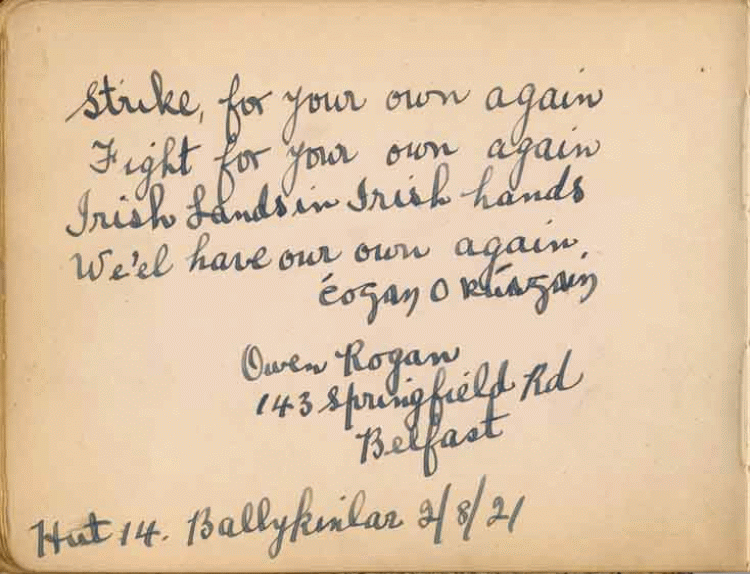 Strike, for your own again
Fight for your own again
Irish Lands in Irish hands
We'el have our own again.
Éogan O
Owen Rogan
143 Springfield Rd
Belfast
Hut 14. Ballykinlar 2/8/21